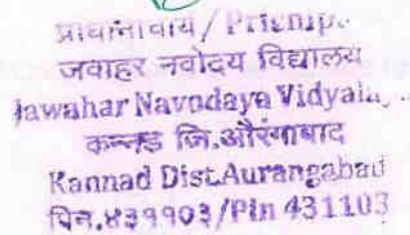 प्राचार्य / Principal
जवाहर नवोदय विद्यालय
Jawahar Navodaya Vidyala
कन्नड जि.औरंगाबाद
Kannad Dist.Aurangabad
पिन.४३११०३/Pin 431103